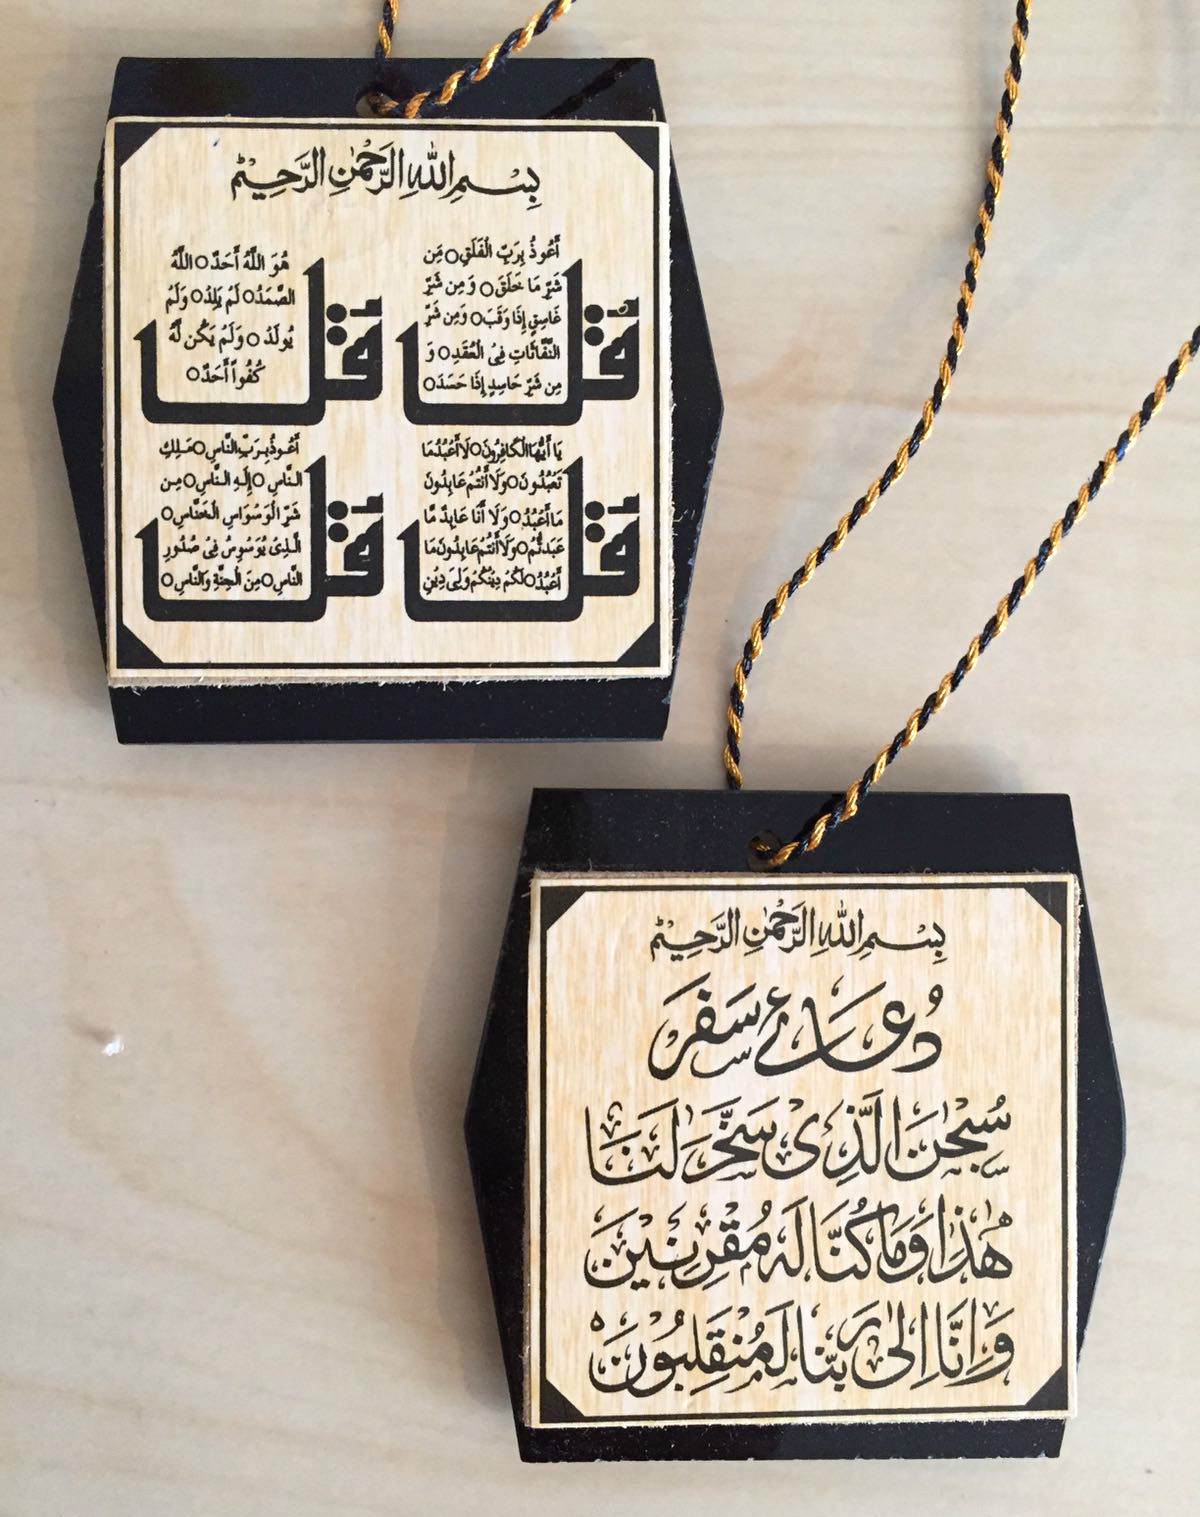 بِسْمِ اللهِ الرَّحْمٰنِ الرَّحِيْمِ
قُل
أَعُوذُ بِرَبِّ الْفَلَقِ ○ مِن
شَرِّ مَا خَلَقَ ○ وَمِن شَرِّ
غَاسِقٍ إِذَا وَقَبَ ○ وَمِن شَرِّ
النَّفَّاثَاتِ فِى الْعُقَدِ ○ وَ
مِن شَرِّ حَاسِدٍ إِذَا حَسَدَ ○
قُل
هُوَ اللَّهُ أَحَدٌ ○ اللَّهُ
الصَّمَدُ ○ لَمْ يَلِدْ ○ وَلَمْ
يُولَدْ ○ وَلَمْ يَكُن لَّهُ
كُفُواً أَحَدٌ ○
قُل
يَا أَيُّهَا الْكَافِرُونَ ○ لَا أَعْبُدُ مَا
تَعْبُدُونَ ○ وَلَا أَنتُمْ عَابِدُونَ
مَا أَعْبُدُ ○ وَلَا أَنَا عَابِدٌ مَّا
عَبَدتُّمْ ○ وَلَا أَنتُمْ عَابِدُونَ مَا
أَعْبُدُ ○ لَكُمْ دِيْنُكُمْ وَلِىَ دِيْنِ
قُل
أَعُوذُ بِرَبِّ النَّاسِ ○ مَلِكِ
النَّاسِ ○ إِلَهِ النَّاسِ ○ مِن
شَرِّ الْوَسْوَاسِ الْخَنَّاسِ ○
الَّذِى يُوَسْوِسُ فِى صُدُورِ
النَّاسِ ○ مِنَ الْجِنَّةِ وَالنَّاسِ ○
بِسْمِ اللهِ الرَّحْمٰنِ الرَّحِيْمِ
دُعَائے سَفَر
سُبْحٰنَ الَّذِىْ سَخَّرَ لَنَا
هٰذَا وَمَا كُنَّا لَهٗ مُقْرِنِيْنَ
وَاِنَّا اِلٰى رَبِّنَا لَمُنْقَلِبُوْنَ ه